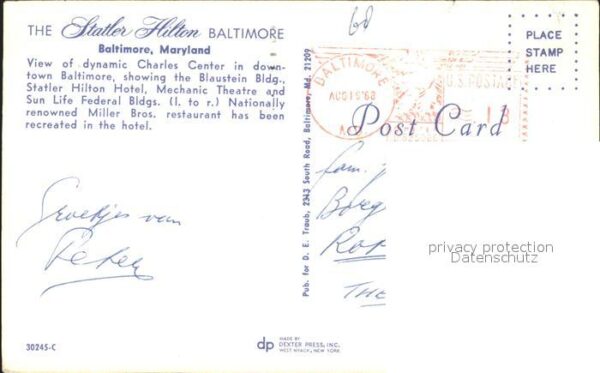 THE Statler Hilton BALTIMORE
Baltimore, Maryland
View of dynamic Charles Center in down-
town Baltimore, showing the Blaustein Bldg.,
Statler Hilton Hotel, Mechanic Theatre and
Sun Life Federal Bldgs. (l. to r.) Nationally
renowned Miller Bros. restaurant has been
recreated in the hotel.
60
PLACE
STAMP
HERE
BALTIMORE
AUG 19 '68
U.S. POSTAGE
Post Card
Pub. for D. E. Traub, 2313 South Road, Baltimore, Md. 21209
Groetjes van
Peter
Fam.
Borg
THE
privacy protection
Datenschutz
30245-C
dp
MADE BY
DEXTER PRESS, INC.
WEST NYACK, NEW YORK